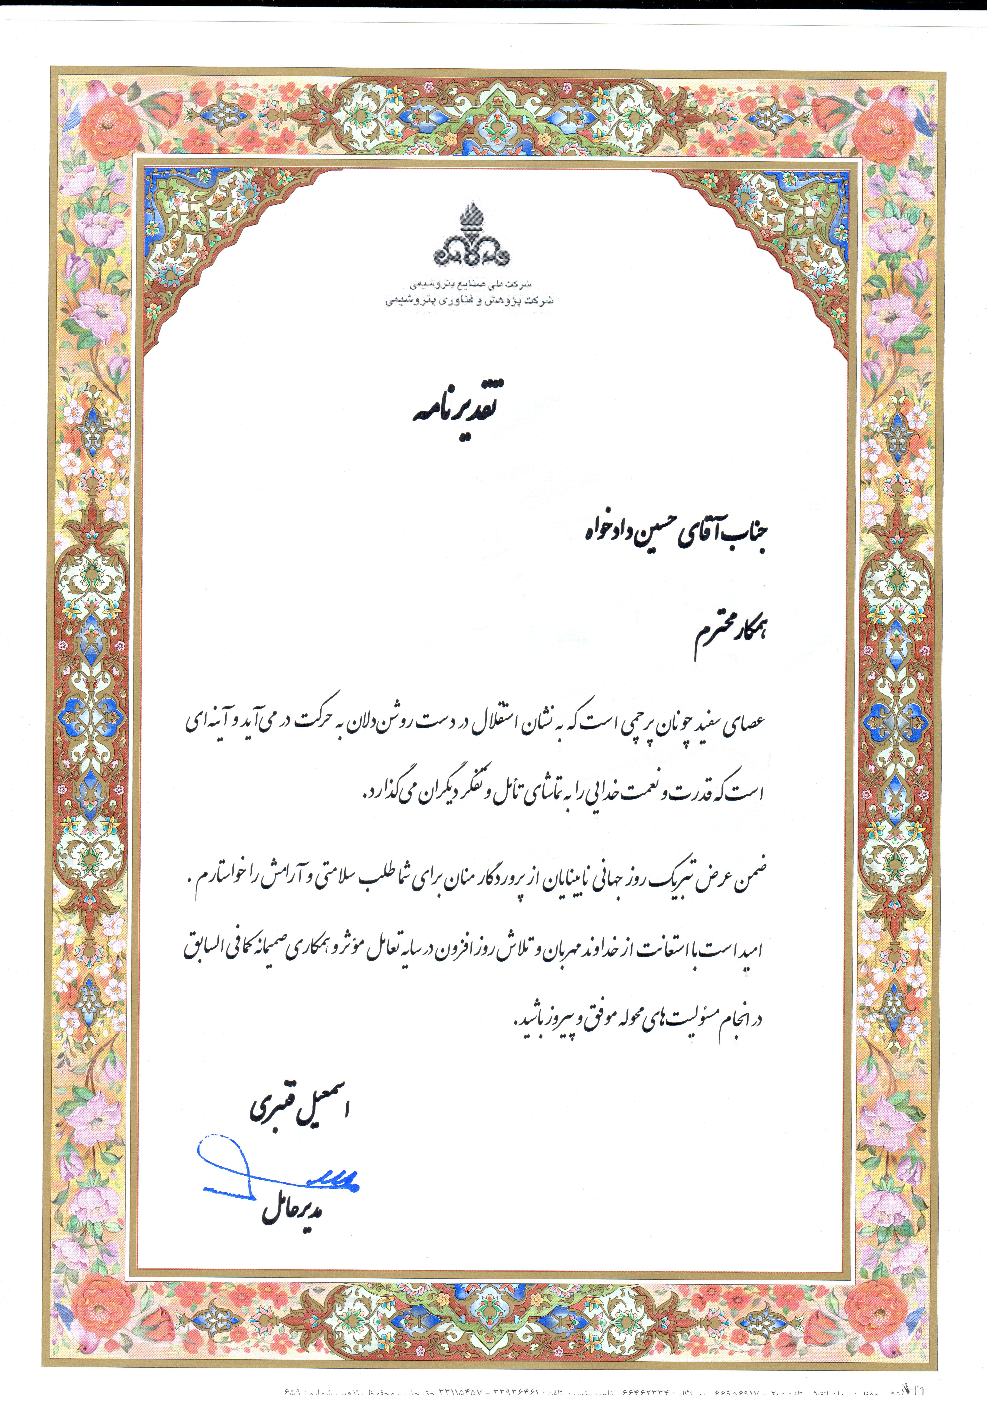 شرکت ملی صنایع پتروشیمی
شرکت پژوهش و فناوری پتروشیمی
تقدیرنامه
جناب آقای حسین دادخواه
همکار محترم
عصای سفید چونان پرچمی است که به نشان استقلال در دست روشن‌دلان به حرکت در می‌آید و آینه‌ای
است که قدرت و نعمت خدایی را به تماشای تأمل و تفکر دیگران می‌گذارد.
ضمن عرض تبریک روز جهانی نابینایان از پروردگار منان برای شما طلب سلامتی و آرامش را خواستارم .
امید است با استعانت از خداوند مهربان و تلاش روزافزون در سایه تعامل مؤثر و همکاری صمیمانه کمافی السابق
در انجام مسئولیت‌های محوله موفق و پیروز باشید.
اسمعیل قنبری
مدیرعامل